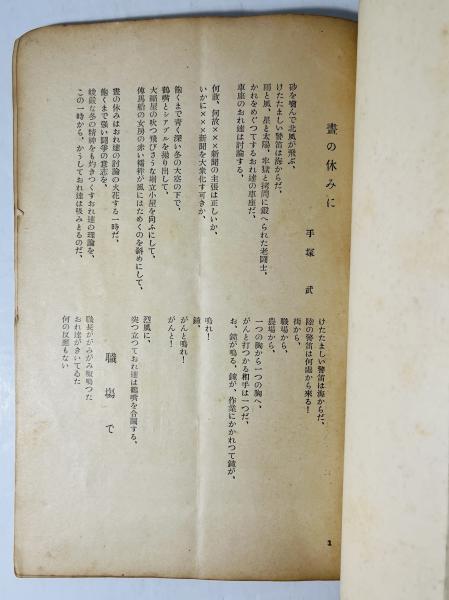 晝の休みに
手塚 武
砂を噛んで北風が飛ぶ、
けたたましい警笛は海からだ、
雨と風、星と太陽、牢獄と拷問に鍛へられた老闘士、
かれをめぐつてするおれ達の車座だ、
車座のおれ達は討論する、
何故、何故×××新聞の主張は正しいか、
いかに×××新聞を大衆化す可きか、
飽くまで青く深い冬の大空の下で、
鶴嘴とシヤブルを抛り出して、
大煙星の吹つ飛びさうな堀立小屋を向ふにして、
傳馬船の女房の赤い襦袢が風にはためくのを斜めにして、
晝の休みはおれ達の討論の火花する一時だ、
飽くまで强い闘爭の意志を、
峻嚴な冬の精神をも灼きつくすおれ達の理論を、
この一時から、かうしておれ達は汲みとるのだ、
けたたましい警笛は海からだ、
陸の警笛は何處から來る！
街から、
職場から、
農場から、
一つの胸から一つの胸へ、
がんと打つかる相手は一つだ、
お、鐘が鳴る、鐘が、作業にかかれつて鐘が、
鳴れ！
鐘、
がんと鳴れ！
がんと！
烈風に、
突つ立つておれ達は鶴嘴を合圖する、
職場で
職長ががみがみ呶鳴つた
おれ達がきいてるた
何の反應もない
1